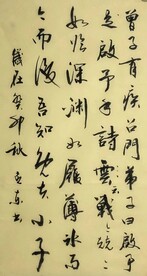 曾子有疾召門弟子曰啟予
足啟予手詩雲云戰〻兢〻
如臨深淵如履薄氷而
今而後吾知免夫小子
歲在癸卯秋